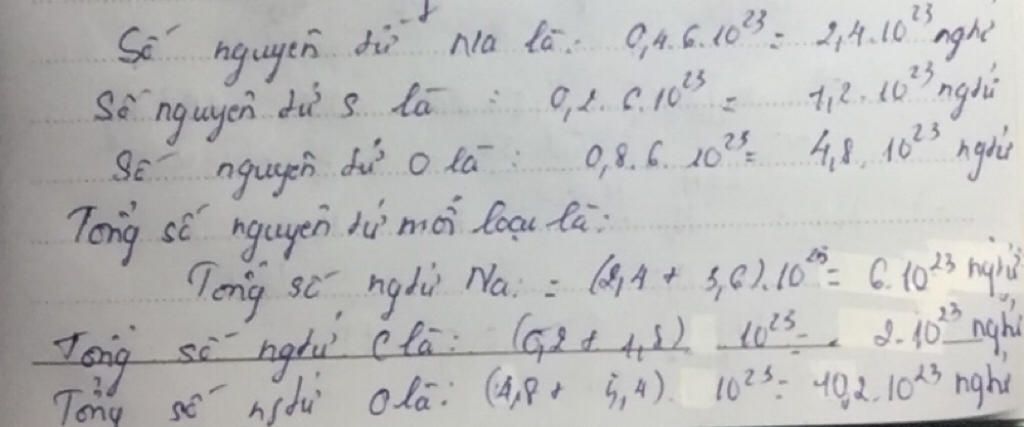 Số nguyên tử Na là: 0,4.6.10²³ = 2,4.10²³ ngtử
Số nguyên tử S là : 0,2.6.10²³ = 1,2.10²³ ngtử
Số nguyên tử O là: 0,8.6.10²³ = 4,8.10²³ ngtử
Tổng số nguyên tử mỗi loại là:
Tổng số ngtử Na: = (2,4 + 3,6).10²³ = 6.10²³ ngtử
Tổng số ngtử C là: (0,2 + 1,8) 10²³ = 2.10²³ ngtử
Tổng số ngtử O là: (4,8 + 5,4). 10²³ = 10,2.10²³ ngtử